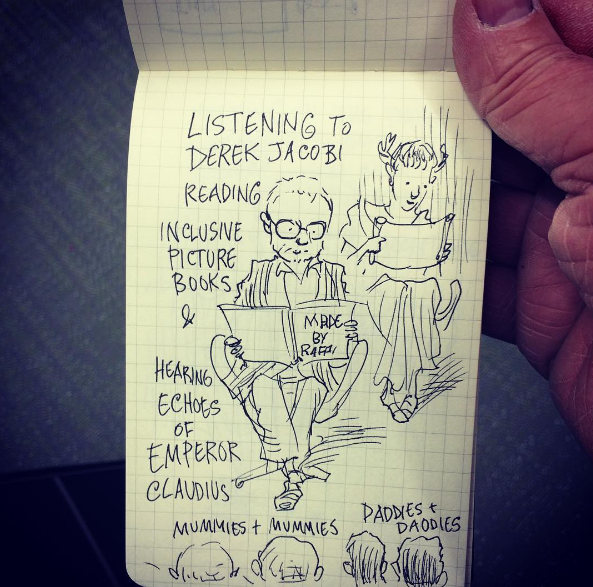 LISTENING TO
DEREK JACOBI
READING
INCLUSIVE
PICTURE
BOOKS
&
MADE
BY
RAFFI
HEARING
ECHOES
OF
EMPEROR
CLAUDIUS
MUMMIES + MUMMIES
DADDIES +
DADDIES